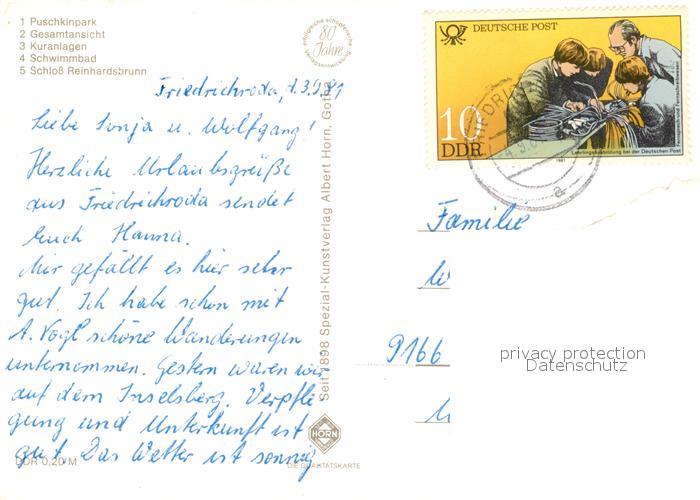 1 Puschkinpark
2 Gesamtansicht
3 Kuranlagen
4 Schwimmbad
5 Schloß Reinhardsbrunn
80 Jahre
DEUTSCHE POST
10
DDR
Lehrlingsausbildung bei der Deutschen Post
1981
Friedrichroda, 1.3.9.81
Liebe Sonja u. Wolfgang!
Herzliche Urlaubsgrüße
aus Friedrichroda sendet
Euch Hanna.
Mir gefällt es hier sehr
gut. Ich habe schon mit
A. Vogl schöne Wanderungen
unternommen. Gestern waren wir
auf dem Inselsberg. Verpfle
gung und Unterkunft ist
gut. Das Wetter ist sonnig
DDR 0,20 M
Seit 1898 Spezial-Kunstverlag Albert Horn, Gotha
HORN
DIE QUALITÄTSKARTE
Familie
9166
privacy protection
Datenschutz